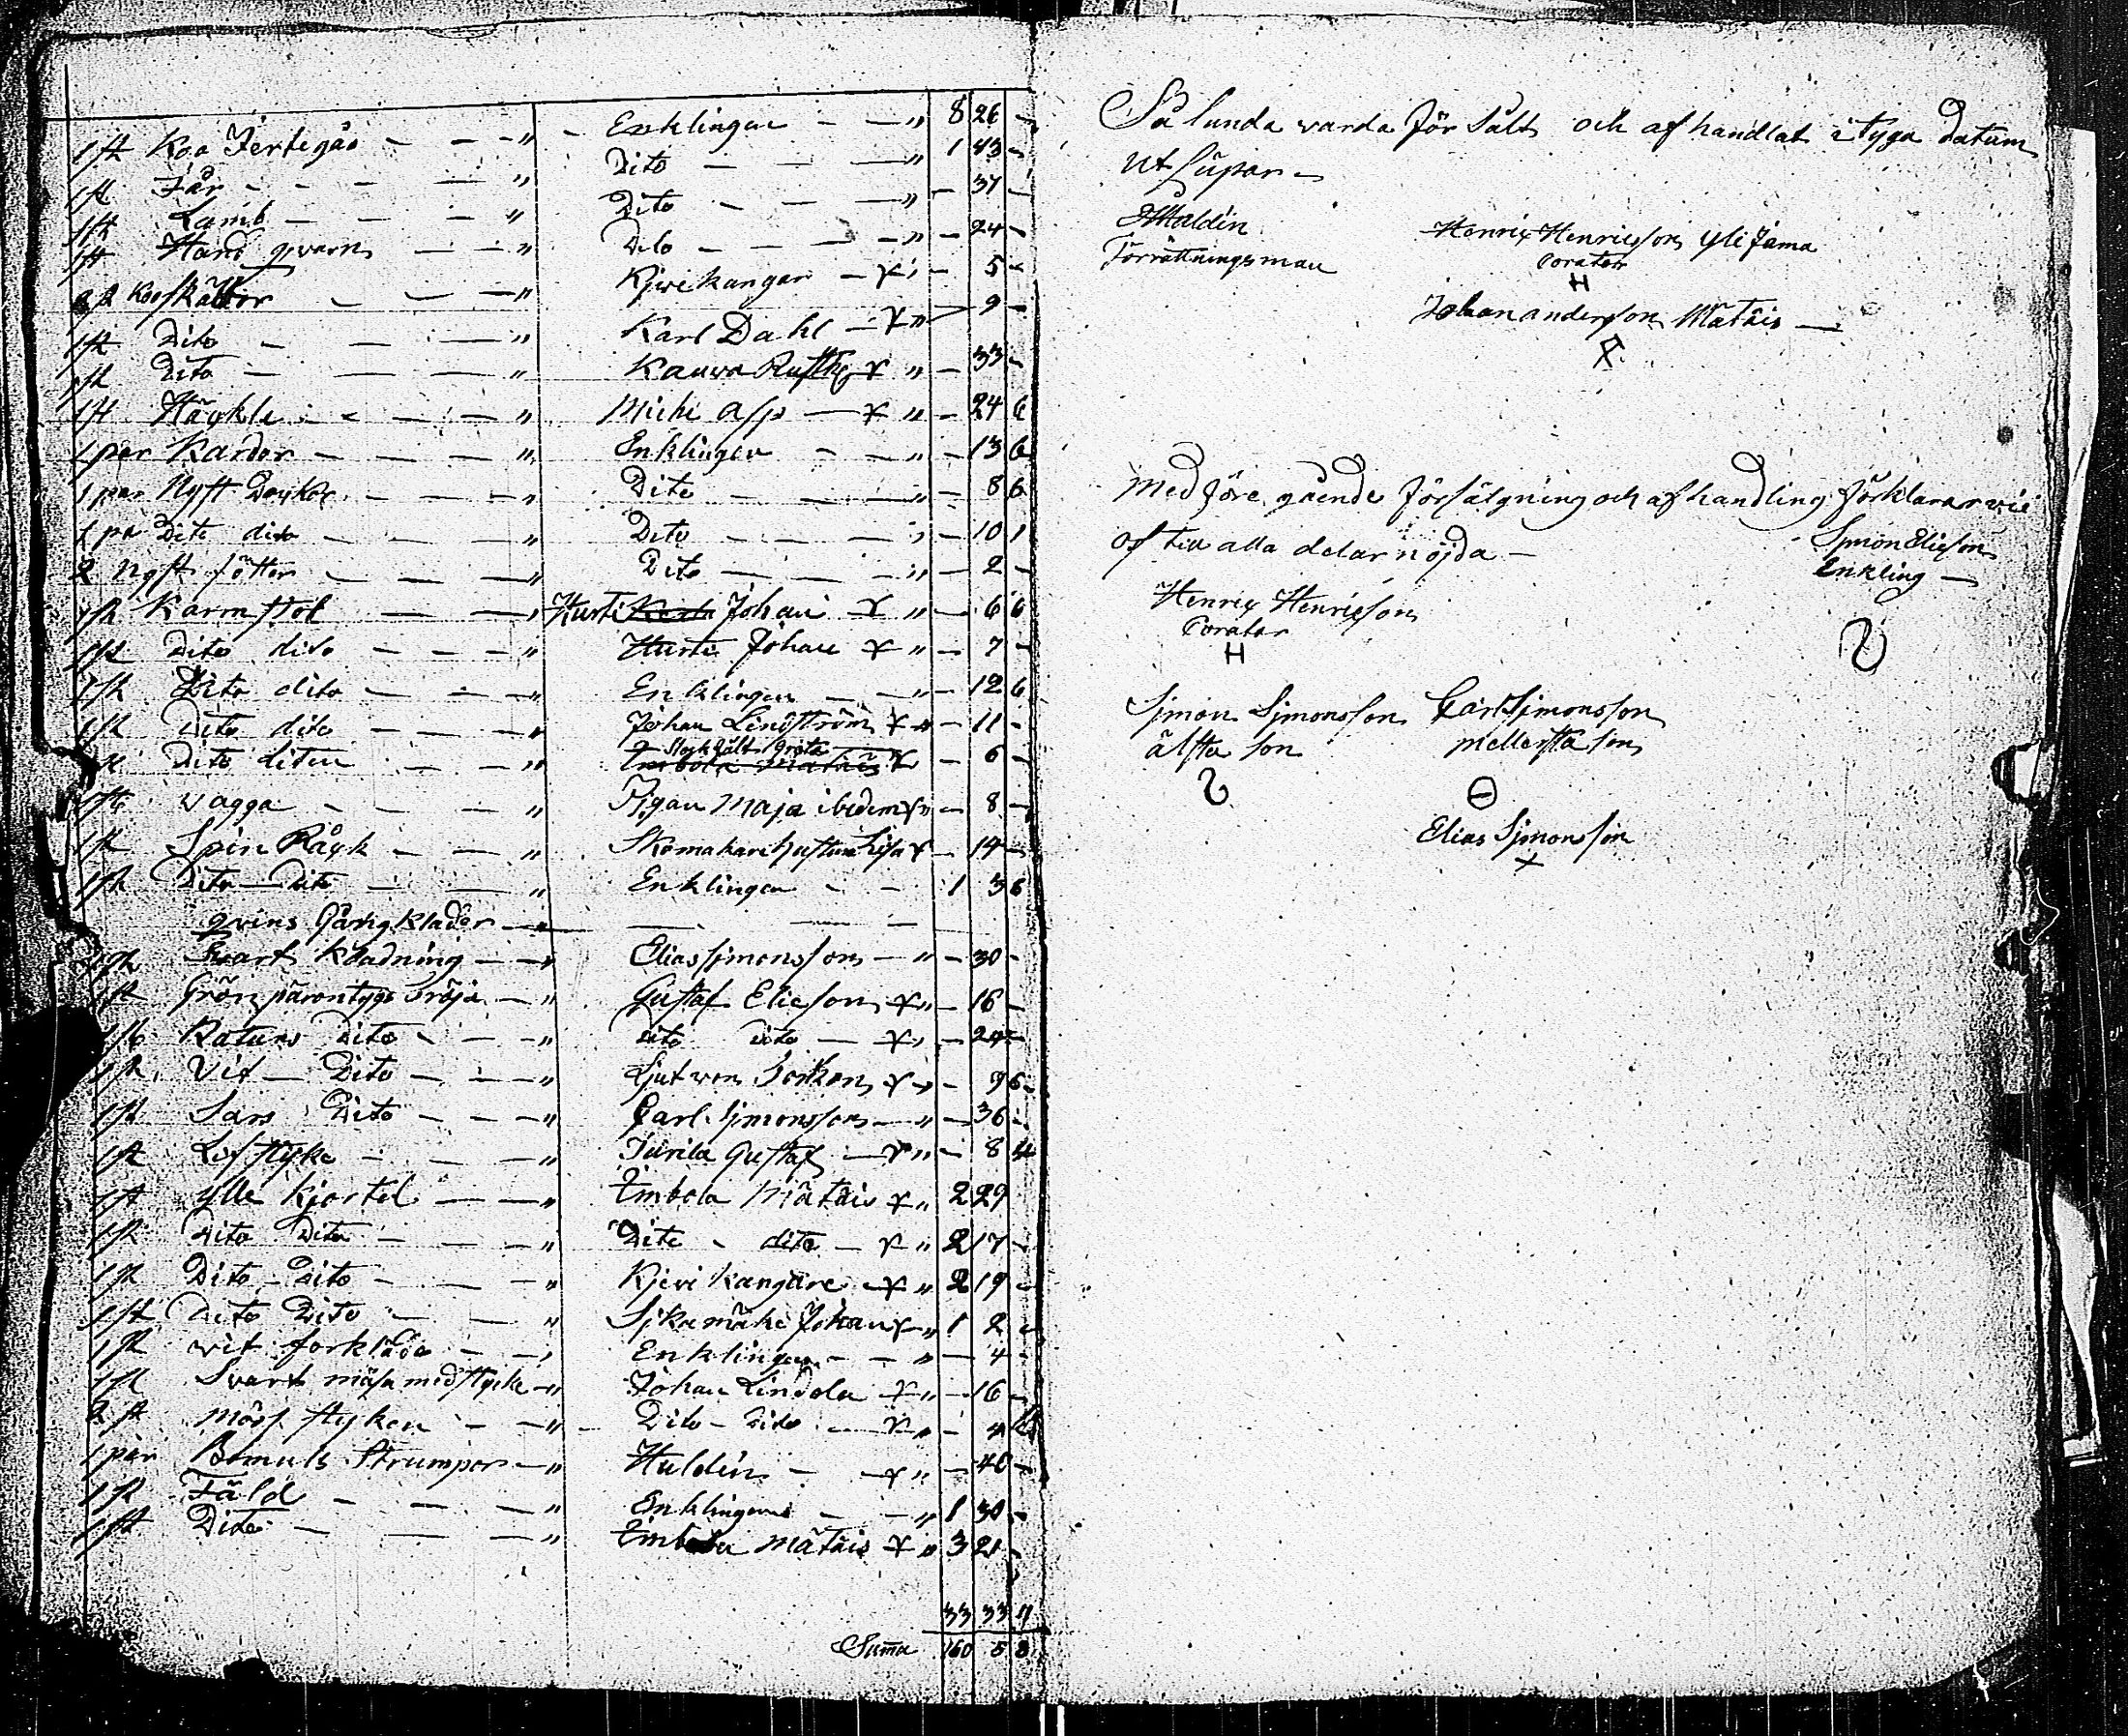 1 st Koa Jertegås — — " — Enklingen — — " 8 26 —
1 st Får — — — — " Dito — — — " 1 43 —
1 st Lamb — — — " Dito — — — " — 37 —
1 st Hand qvarn — — " Dito — — — " — 24 —
st Koo skällor — — — " Kjvikangar — X " — 5 —
1 st Dito — — — " Karl Dahl — X " — 9 —
1 st Dito — — — " Kauva X " — 33 —
1 st Häckla — — — " Michi Asp — X " — 24 6
1 par Kardor — — — — " Enklingen — — " — 13 6
1 par Nyst — — — — " Dito — — — " — 8 6
1 pa Dito dito — — — " Dito — — — " — 10 1
2 nyst fötter — — — " Dito — — — " — 2 —
1 st Karmstol — — " Hurti Johan X " — 6 6
1 st Dito dito — — — " Hurti Johan X " — 7 —
1 st Dito dito — — — " Enklingen — — " — 12 6
1 st Dito dito — — — " Johan Lindström X " — 11 —
Greta
1 st Dito liten — — " Embola Matais X — 6 —
1 st vagga — — — " Pigan Maja ibidem X " — 8 —
1 st Spin Råck — — " Skomakare hustrun Lisa X — 14 —
1 st Dito — Dito — — " Enklingen — — 1 3 6
qvins Gång klader — " — — —
1 st Svart Kladning — — " Elias Simonsson — " — 30 —
1 st Grön tröja — " Gustaf Elieson X " — 16 —
1 st Katuns Dito — — " Dito Dito — X " — 24 —
1 st Vit — Dito — — — " X " — 9 6
1 st Sars Dito — — — " Carl Simonsson — " — 36 —
1 st Lifstyke — — — " Jurila Gustaf — X " — 8
1 st ylle kjortel — — " Embola Mätais X " 2 29
1 st Dito Dito — — — " Dito — dito — X " 2 17 —
1 st Dito — Dito — — — " Kjvikangare X " 2 19 —
1 st Dito Dito — — " Sikamäki Johan X " 1 2 —
1 st vit forkläda — — " Enklingen — — " — 4 —
1 st Svart mäsa med stycke — " Johan Lindola X " — 16 —
2 st mös stycken — — " — Dito — Dito — X " — 4
1 pär Bomuls Strumpor — " Huldin — — X " — 40 —
1 st Fäld — — — — " Enklingen — — " 1 30 —
1 st Dito — — — " Embola Mätais X " 3 21 —
33 33 7
Suma 160 5 8
Så lunda varda försålt och afhandlat i tyga datum
ut supar —
Huldin
Förrättningsman
Henrix Henrixson Yli Jama
Corator
H
Johan anderson Mätais —
Med före gående försälgning och afhandling förklarar vi
os till alla delar nöjda —
Simon Elieson
Enkling —
Henrix Henrixson
Corator
H
Simon Simonsson
älsta son
Carl Simonsson
mellersta son
Elias Simonsson
X